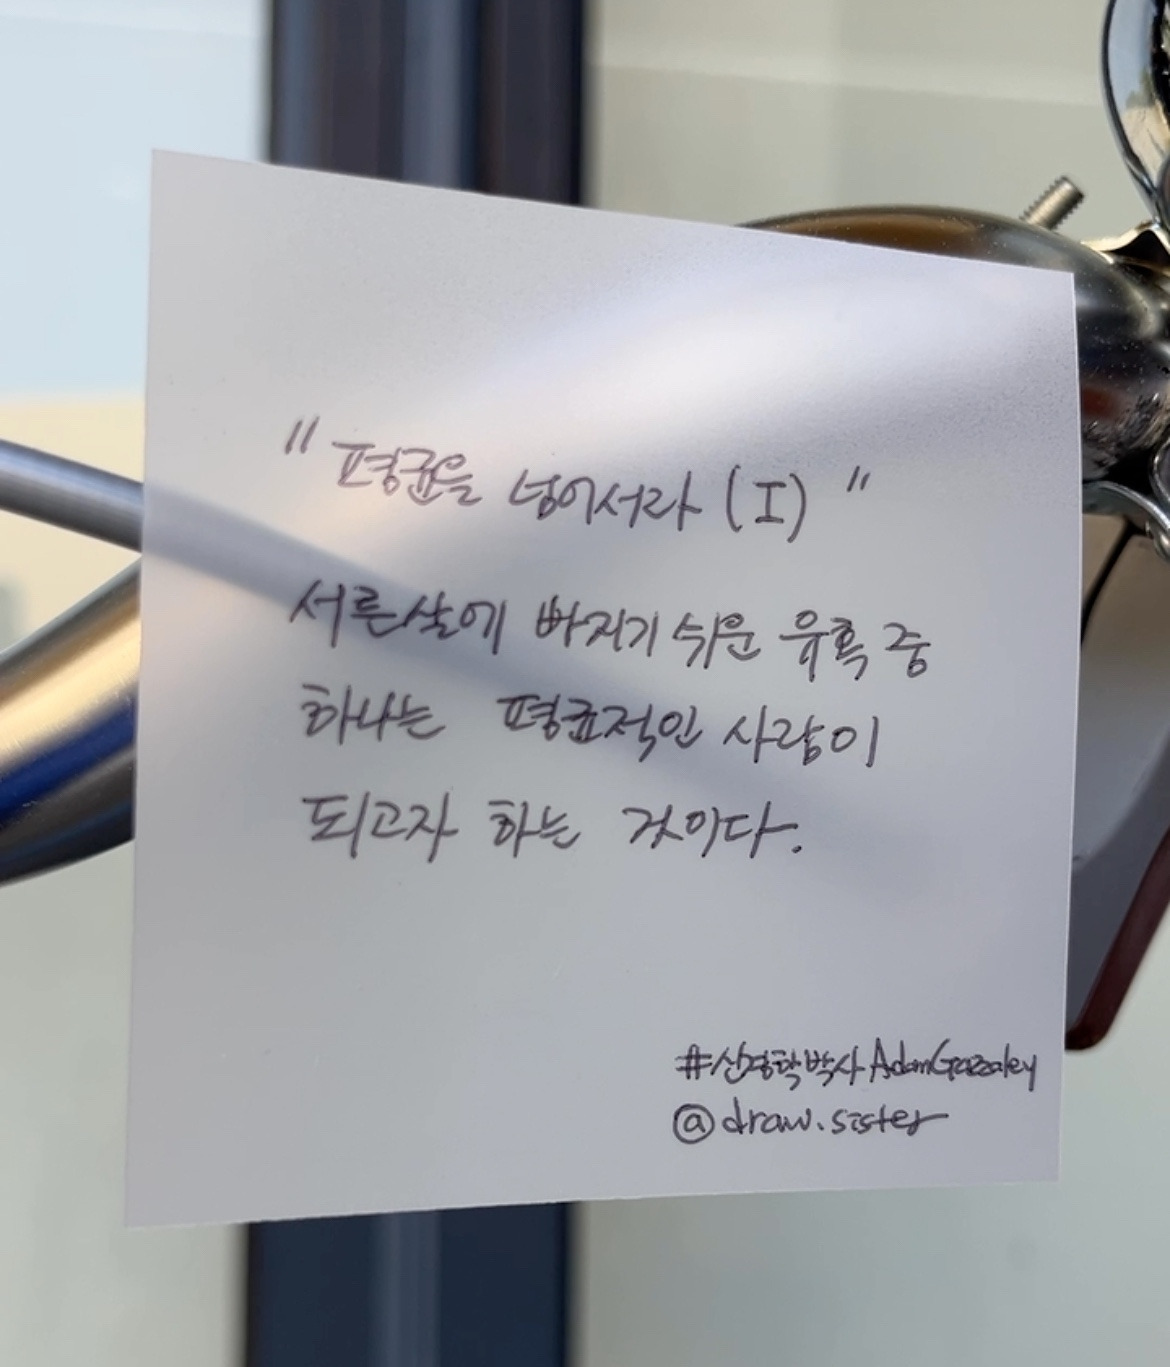 "평균을 넘어서라 (I)"
서른살에 빠지기 쉬운 유혹 중
하나는 평균적인 사람이
되고자 하는 것이다.
#신경학박사AdamGazzaley
@draw.sister